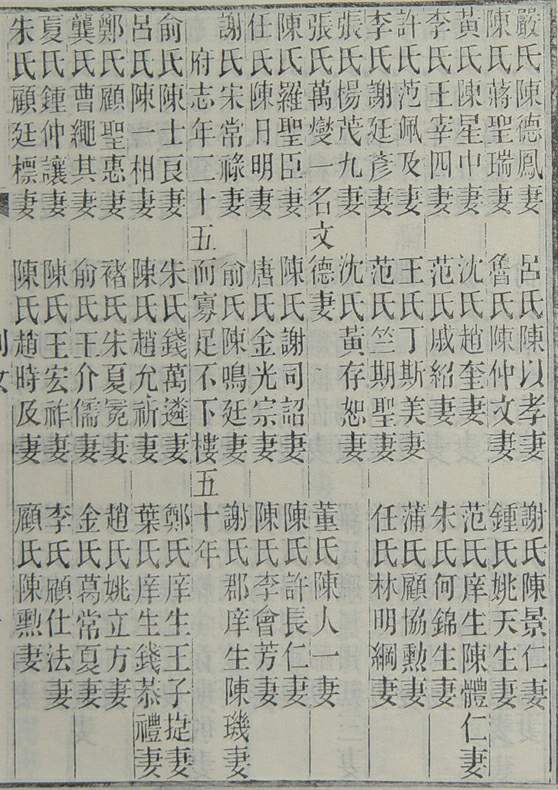 嚴氏陳德鳳妻 呂氏陳以孝妻 謝氏陳景仁妻
陳氏蔣聖瑞妻 魯氏陳仲文妻 鍾氏姚天生妻
黃氏陳星中妻 沈氏趙奎妻 范氏庠生陳體仁妻
李氏王宰四妻 范氏戚紹妻 朱氏何錦生妻
許氏范佩及妻 王氏丁斯美妻 蒲氏顧協勲妻
李氏謝廷彥妻 范氏竺期聖妻 任氏林明綱妻
張氏楊茂九妻 沈氏黃存恕妻
張氏萬燮一名文德妻 董氏陳人一妻
陳氏羅聖臣妻 陳氏謝司詔妻 陳氏許長仁妻
任氏陳日明妻 唐氏金光宗妻 陳氏李會芳妻
謝氏宋常祿妻 俞氏陳鳴廷妻 謝氏郡庠生陳璣妻
府志年二十五而寡足不下樓五十年
俞氏陳士良妻 朱氏錢萬遴妻 鄭氏庠生王子妻
呂氏陳一相妻 陳氏趙允祈妻 葉氏庠生錢恭禮妻
鄭氏顧聖惠妻 褚氏朱夏冕妻 趙氏姚立方妻
龔氏曹繩其妻 俞氏王介儒妻 金氏葛常夏妻
夏氏鍾仲讓妻 陳氏王宏祚妻 李氏顧仕法妻
朱氏顧廷標妻 陳氏趙時及妻 顧氏陳勲妻